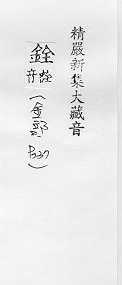 精嚴新集大藏音
銓
音詮
(金部 P.27)